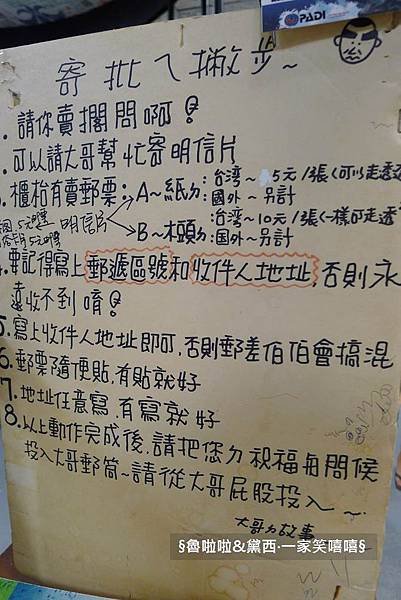 PADI
寄批ㄟ撇步~
. 請你賣擱問啊!
. 可以請大哥幫忙寄明信片
. 櫃枱有賣郵票:
明信片
A~紙ㄉ: 台湾~5元/張<可以走透透
国外~另計
B~木頭ㄉ: 台湾~10元/張<一樣可走透
国外~另計
4. 要記得寫上郵遞區號和收件人地址,否則永
遠收不到唷!
5. 寫上收件人地址即可,否則郵差伯伯會搞混
6. 郵票隨便貼,有貼就好
7. 地址任意寫,有寫就好
8. 以上動作完成後,請把您ㄉ祝福與問侯
投入大哥郵筒~請從大哥屁股投入~
大哥ㄉ故事
§魯啦啦&黛西‧一家笑嘻嘻§